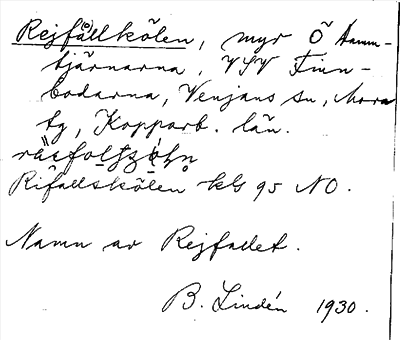 Rejfållkölen, myr Ö Damm-
tjärnarna, VSV Finn-
bodarna, Venjans sn, Mora
tg, Kopparb. län.
Rifallskölen kbl 95 NO.
Namn av Rejfallet.
B. Lindén 1930.